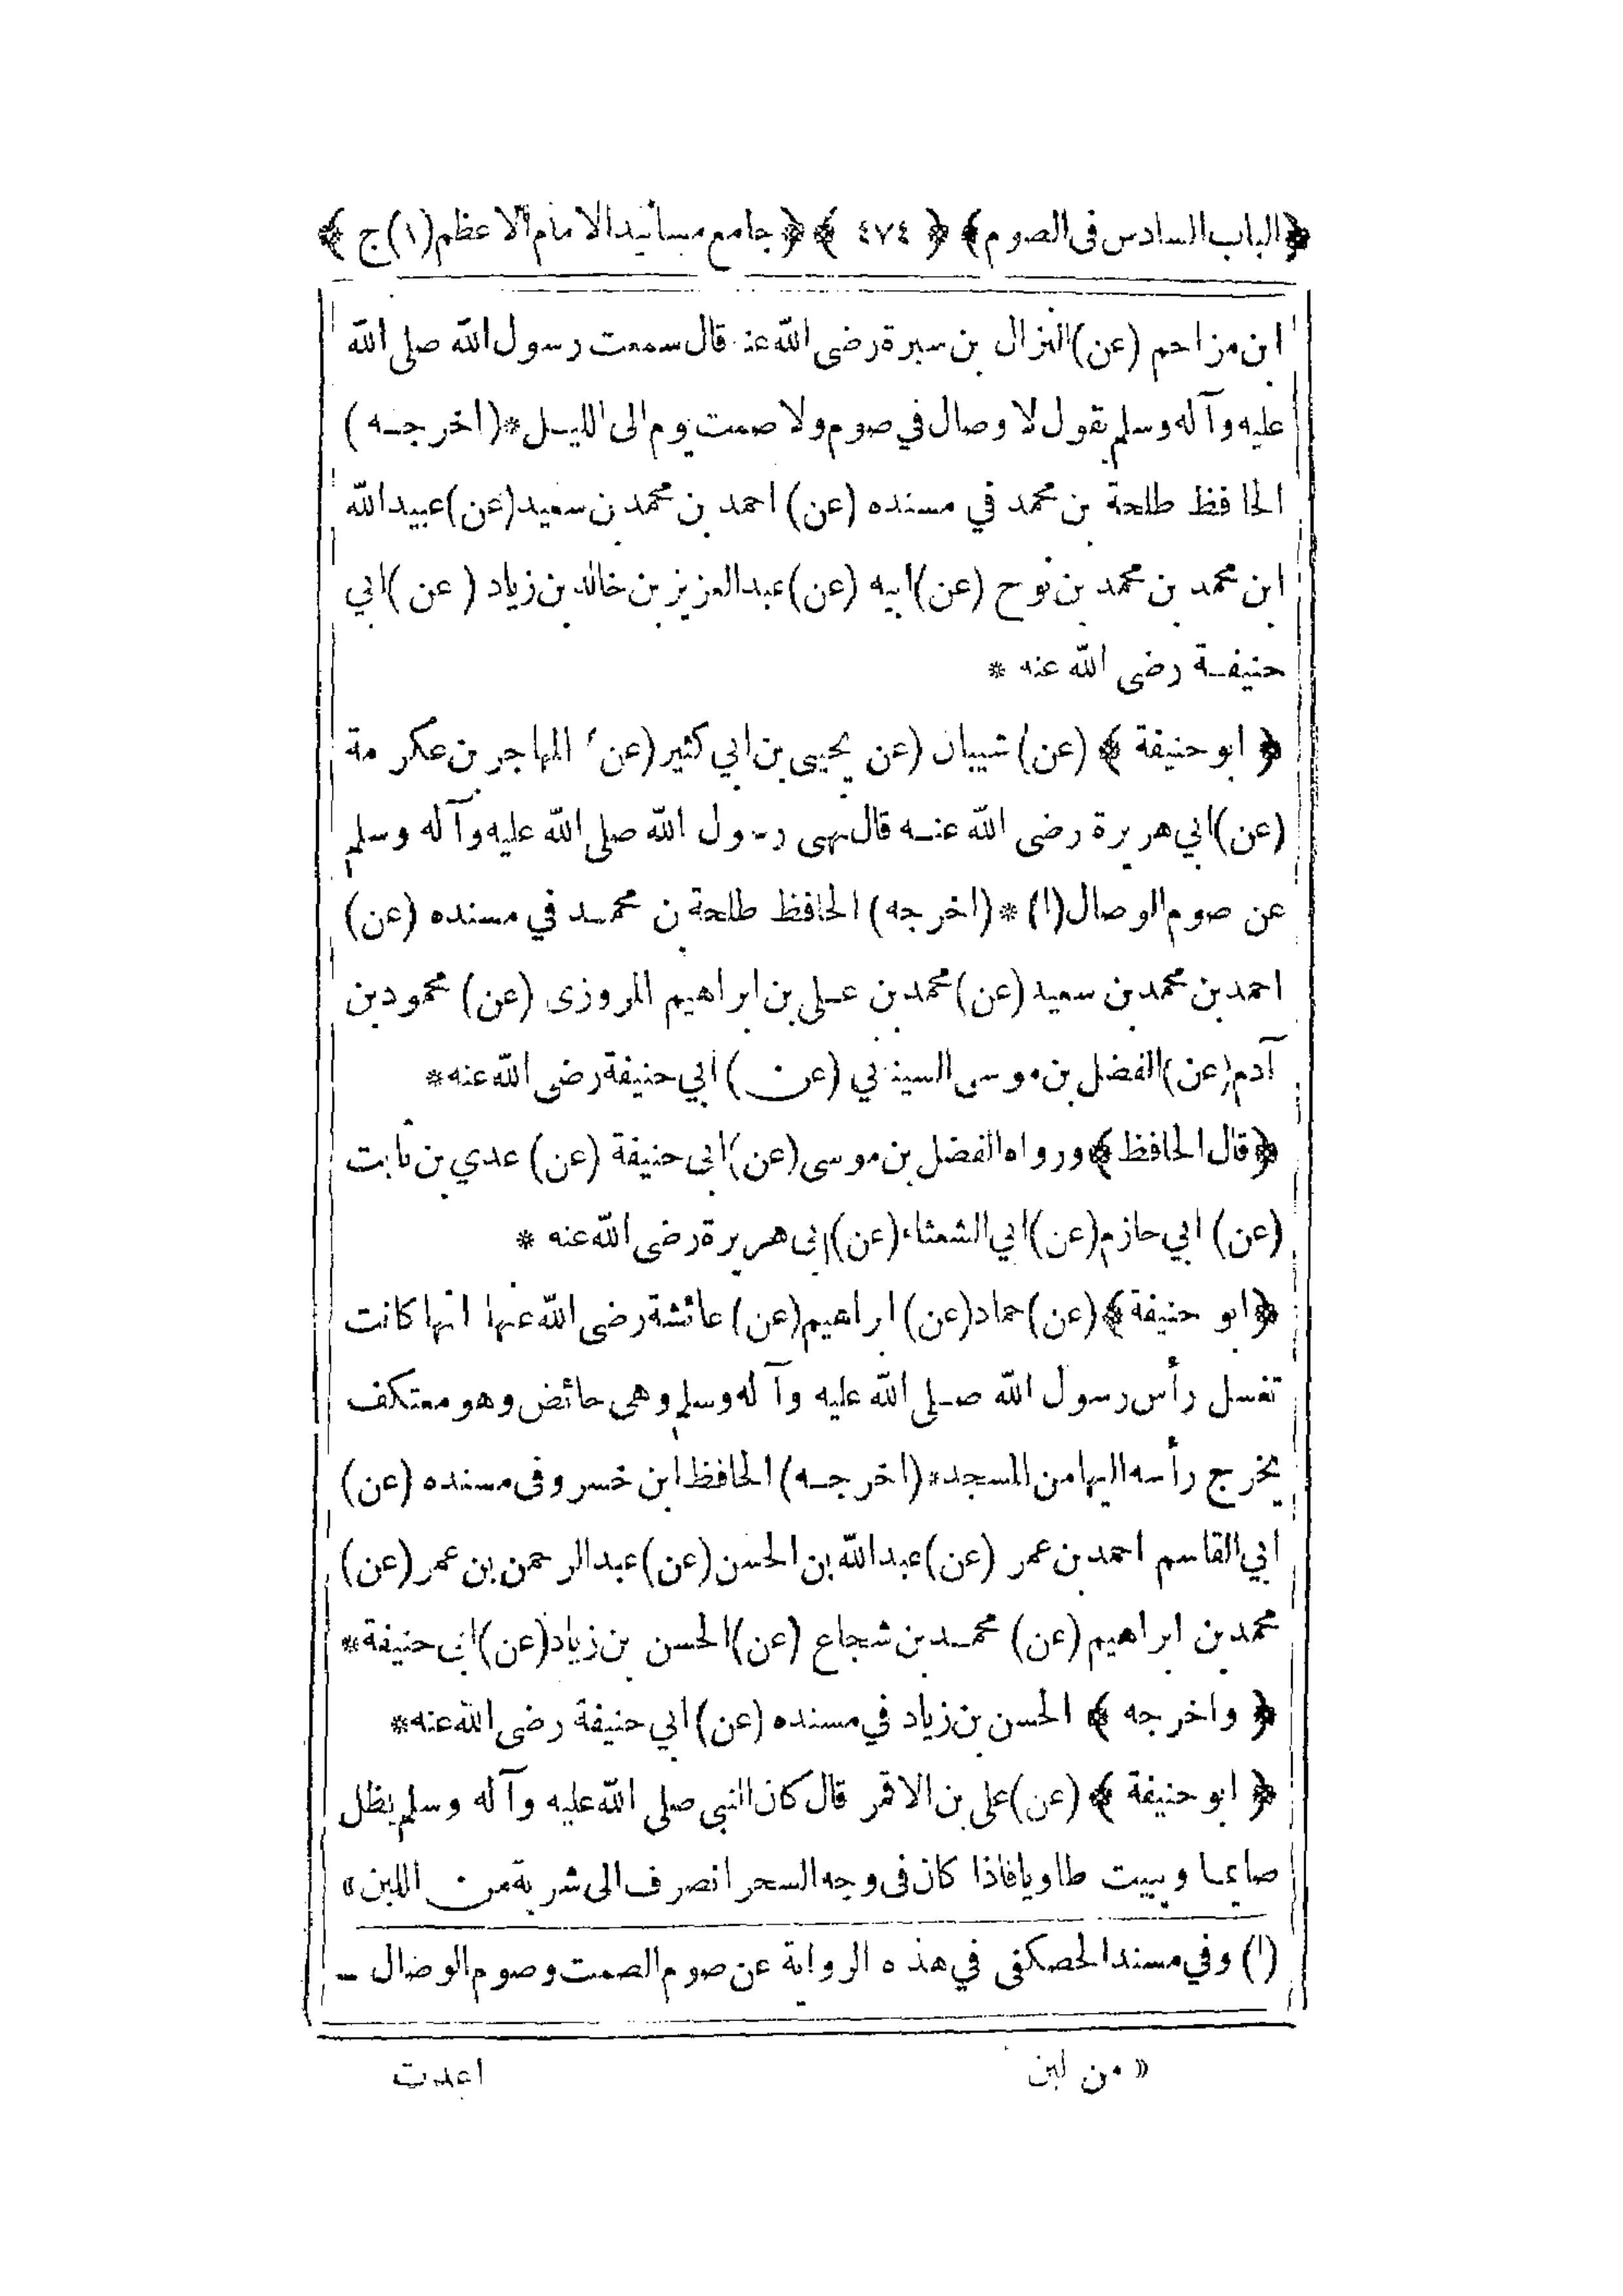 ﴿الباب السادس فى الصوم﴾ ﴿ ٤٧٤ ﴾ ﴿جامع مسانيد الامام الاعظم(١) ج ﴾
ابن مزاحم (عن) النزال بن سبرة رضى الله عنه قال سمعت رسول الله صلى الله
عليه وآله وسلم يقول لا وصال في صوم ولا صمت يوم الى الليل*(اخرجه)
الحافظ طلحة بن محمد في مسنده (عن) احمد بن محمد بن سعيد (عن) عبيد الله
ابن محمد بن محمد بن نوح (عن) ابيه (عن) عبد العزيز بن خالد بن زياد (عن) ابي
حنيفة رضى الله عنه *
﴿ ابو حنيفة ﴾ (عن) شيبان (عن يحيى بن ابي كثير (عن) المهاجر بن عكرمة
(عن) ابي هريرة رضى الله عنه قال نهى رسول الله صلى الله عليه وآله وسلم
عن صوم الوصال(١) *(اخرجه) الحافظ طلحة بن محمد في مسنده (عن)
احمد بن محمد بن سعيد (عن) محمد بن على بن ابراهيم المروزى (عن) محمود بن
آدم (عن) الفضل بن موسى السيناني (عن) ابي حنيفة رضى الله عنه*
﴿قال الحافظ﴾ ورواه الفضل بن موسى (عن) ابى حنيفة (عن) عدي بن ثابت
(عن) ابي حازم (عن) ابي الشعثاء (عن) ابى هريرة رضى الله عنه *
﴿ابو حنيفة﴾ (عن) حماد (عن) ابراهيم (عن) عائشة رضى الله عنها انها كانت
تغسل رأس رسول الله صلى الله عليه وآله وسلم وهى حائض وهو معتكف
يخرج رأسه اليها من المسجد* (اخرجه) الحافظ ابن خسرو فى مسنده (عن)
ابي القاسم احمد بن عمر (عن) عبد الله بن الحسن (عن) عبد الرحمن بن عمر (عن)
محمد بن ابراهيم (عن) محمد بن شجاع (عن) الحسن بن زياد (عن) ابى حنيفة*
﴿ واخرجه ﴾ الحسن بن زياد في مسنده (عن) ابي حنيفة رضى الله عنه*
﴿ ابو حنيفة ﴾ (عن) على بن الاقمر قال كان النبى صلى الله عليه وآله وسلم يظل
صائما ويبيت طاويا فاذا كان فى وجه السحر انصرف الى شربة من اللبن «
(١) وفي مسند الحصكفى في هذه الرواية عن صوم الصمت وصوم الوصال ـ
« من لبن اعدت